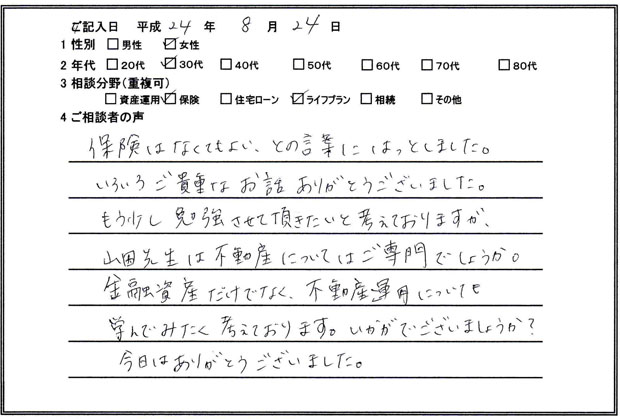 ご記入日 平成 24 年 8 月 24 日
1 性別 □男性 ☑女性
2 年代 □20代 ☑30代 □40代 □50代 □60代 □70代 □80代
3 相談分野(重複可)
□資産運用 ☑保険 □住宅ローン ☑ライフプラン □相続 □その他
4 ご相談者の声
保険はなくてもよい、との言葉にはっとしました。
いろいろご貴重なお話ありがとうございました。
もう少し勉強させて頂きたいと考えておりますが、
山田先生は不動産についてはご専門でしょうか。
金融資産だけでなく、不動産運用についても
学んでみたく考えております。いかがでございましょうか?
今日はありがとうございました。